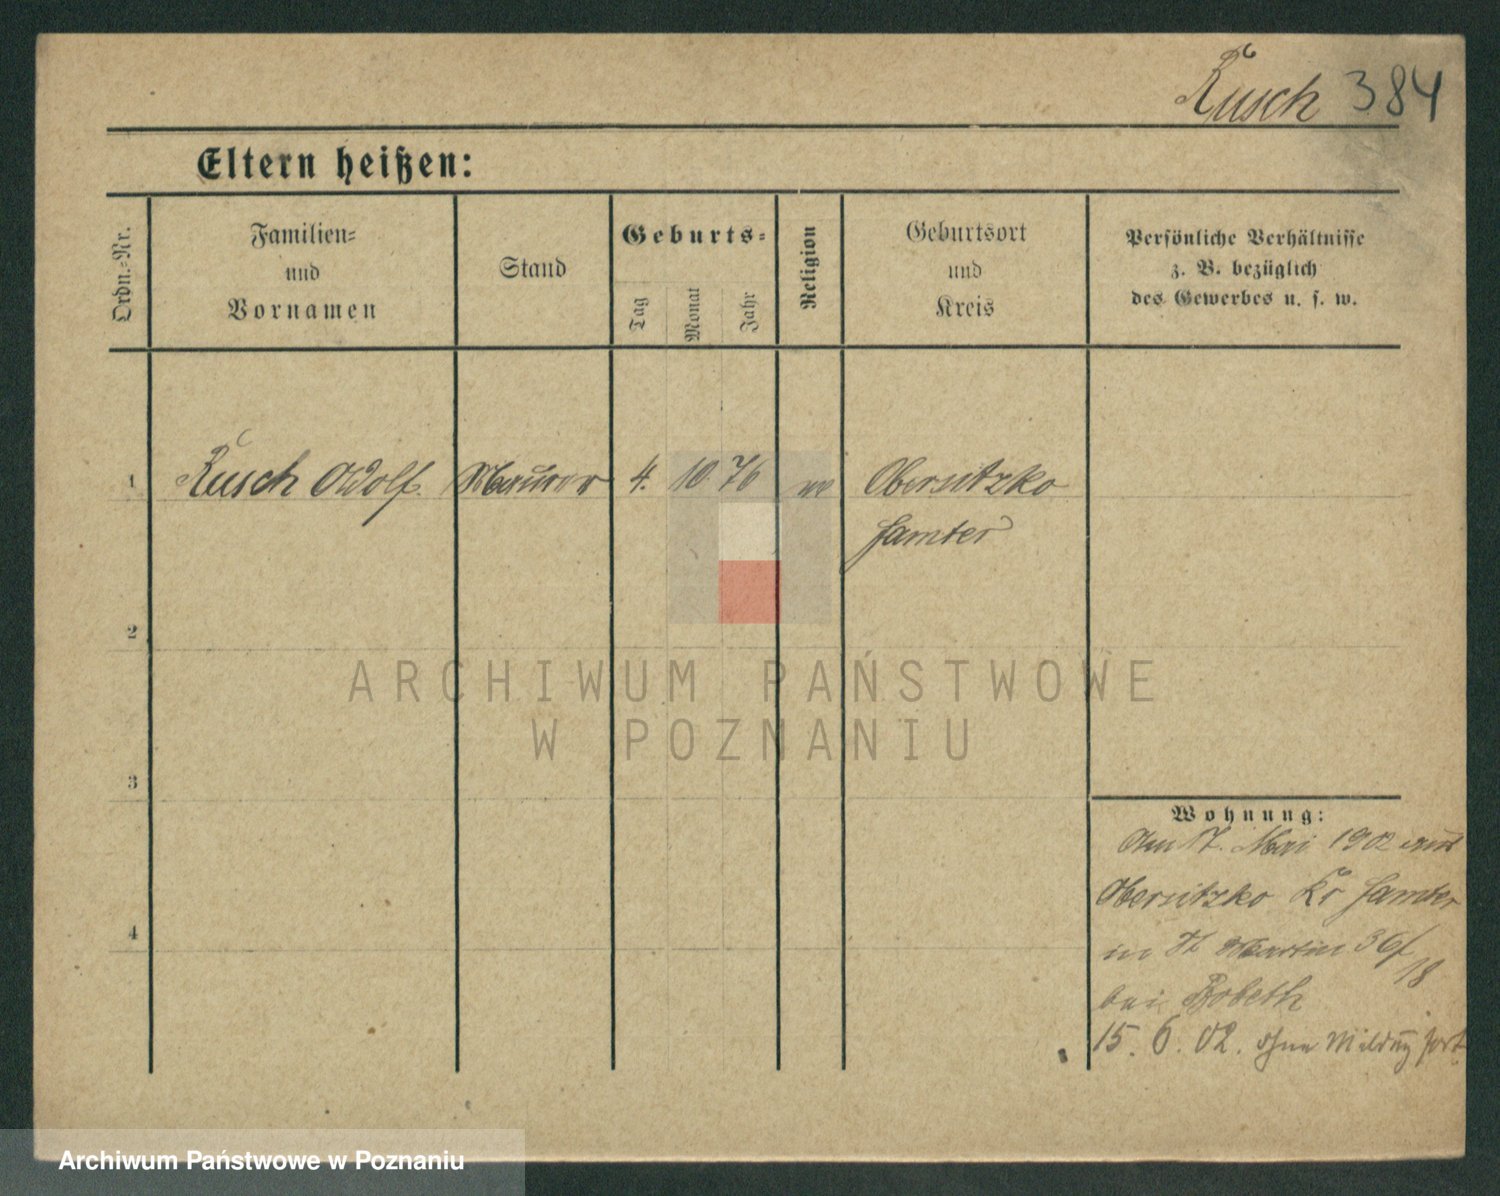 Rusch 384
Eltern heißen:
Ordn.-Nr.
Familien-
und
Vornamen
Stand
Geburts-
Tag
Monat
Jahr
Religion
Geburtsort
und
Kreis
Persönliche Verhältnisse
z. B. bezüglich
des Gewerbes u. s. w.
1 Rusch Adolf Maurer 4. 10 76 Obersitzko
Samter
2
ARCHIWUM PAŃSTWOWE
W POZNANIU
3
Wohnung:
Am 17. Mai 1902 aus
Obersitzko Kr Samter
4
in St Martin 36/18
bei
15. 6. 02. ohne Meldung fort
Archiwum Państwowe w Poznaniu